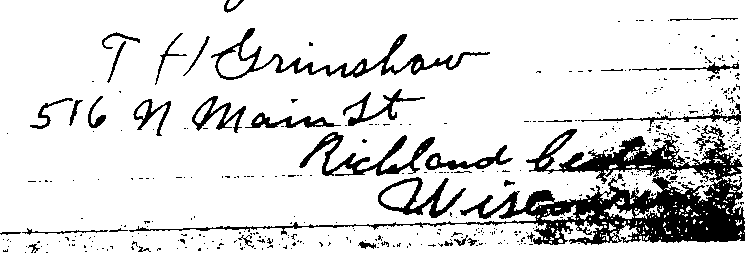 T H Grimshaw
516 N Main St
Richland Center
Wisconsin